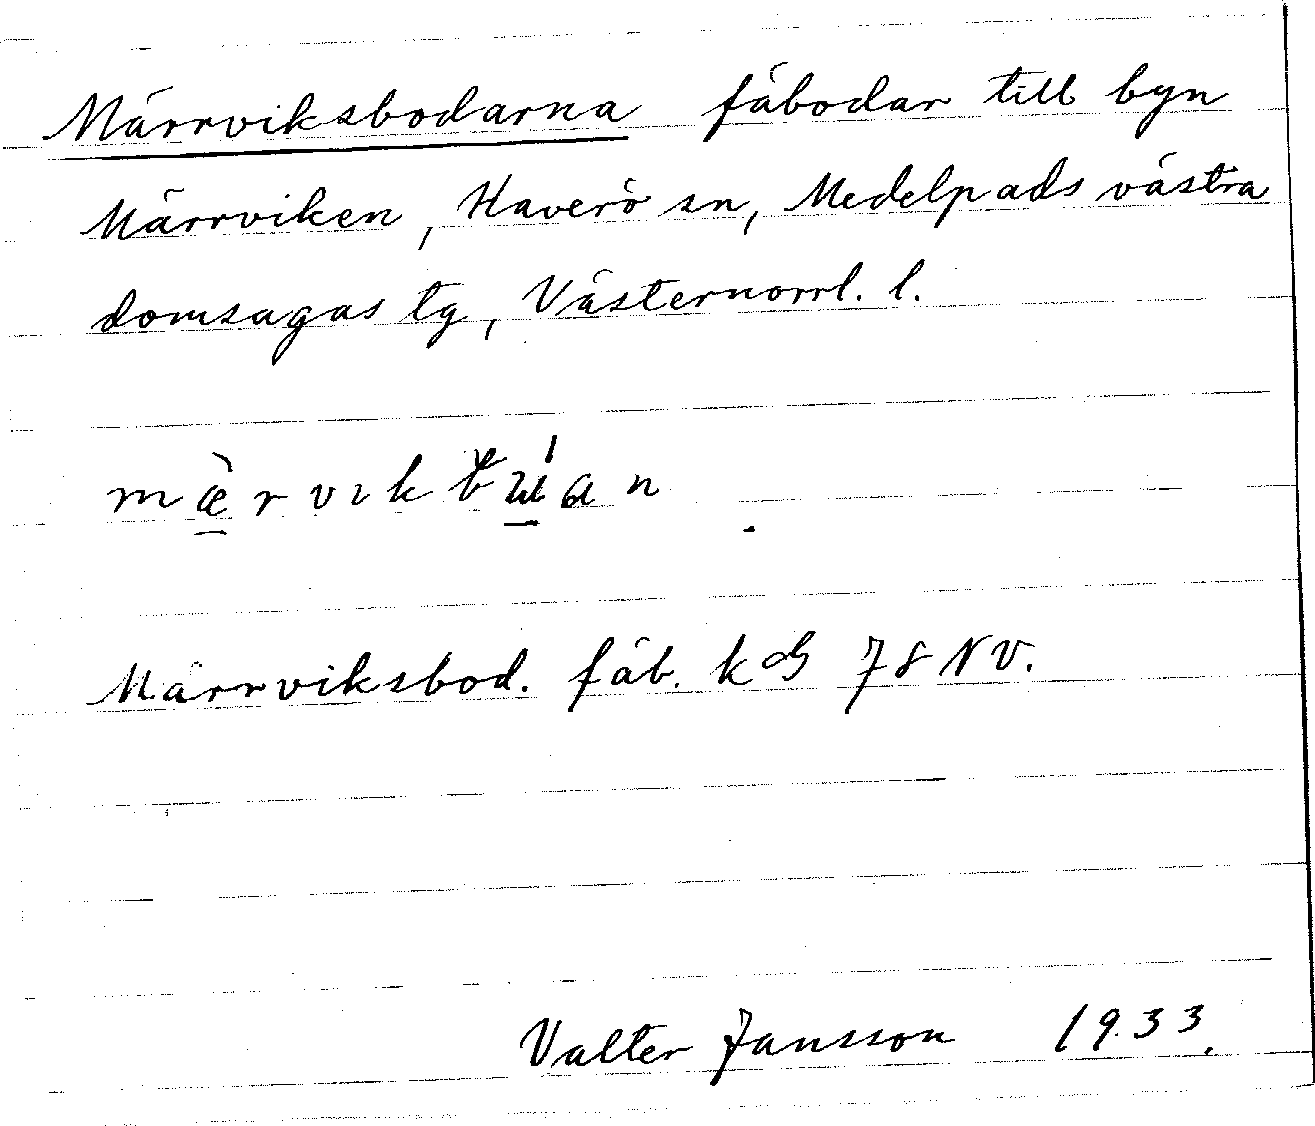 Märrviksbodarna fäbodar till byn
Märrviken, Haverö sn, Medelpads västra
domsagas tg, Västernorrl. l.
Märrviksbod. fäb. 78 NV.
Valter Jansson 1933.